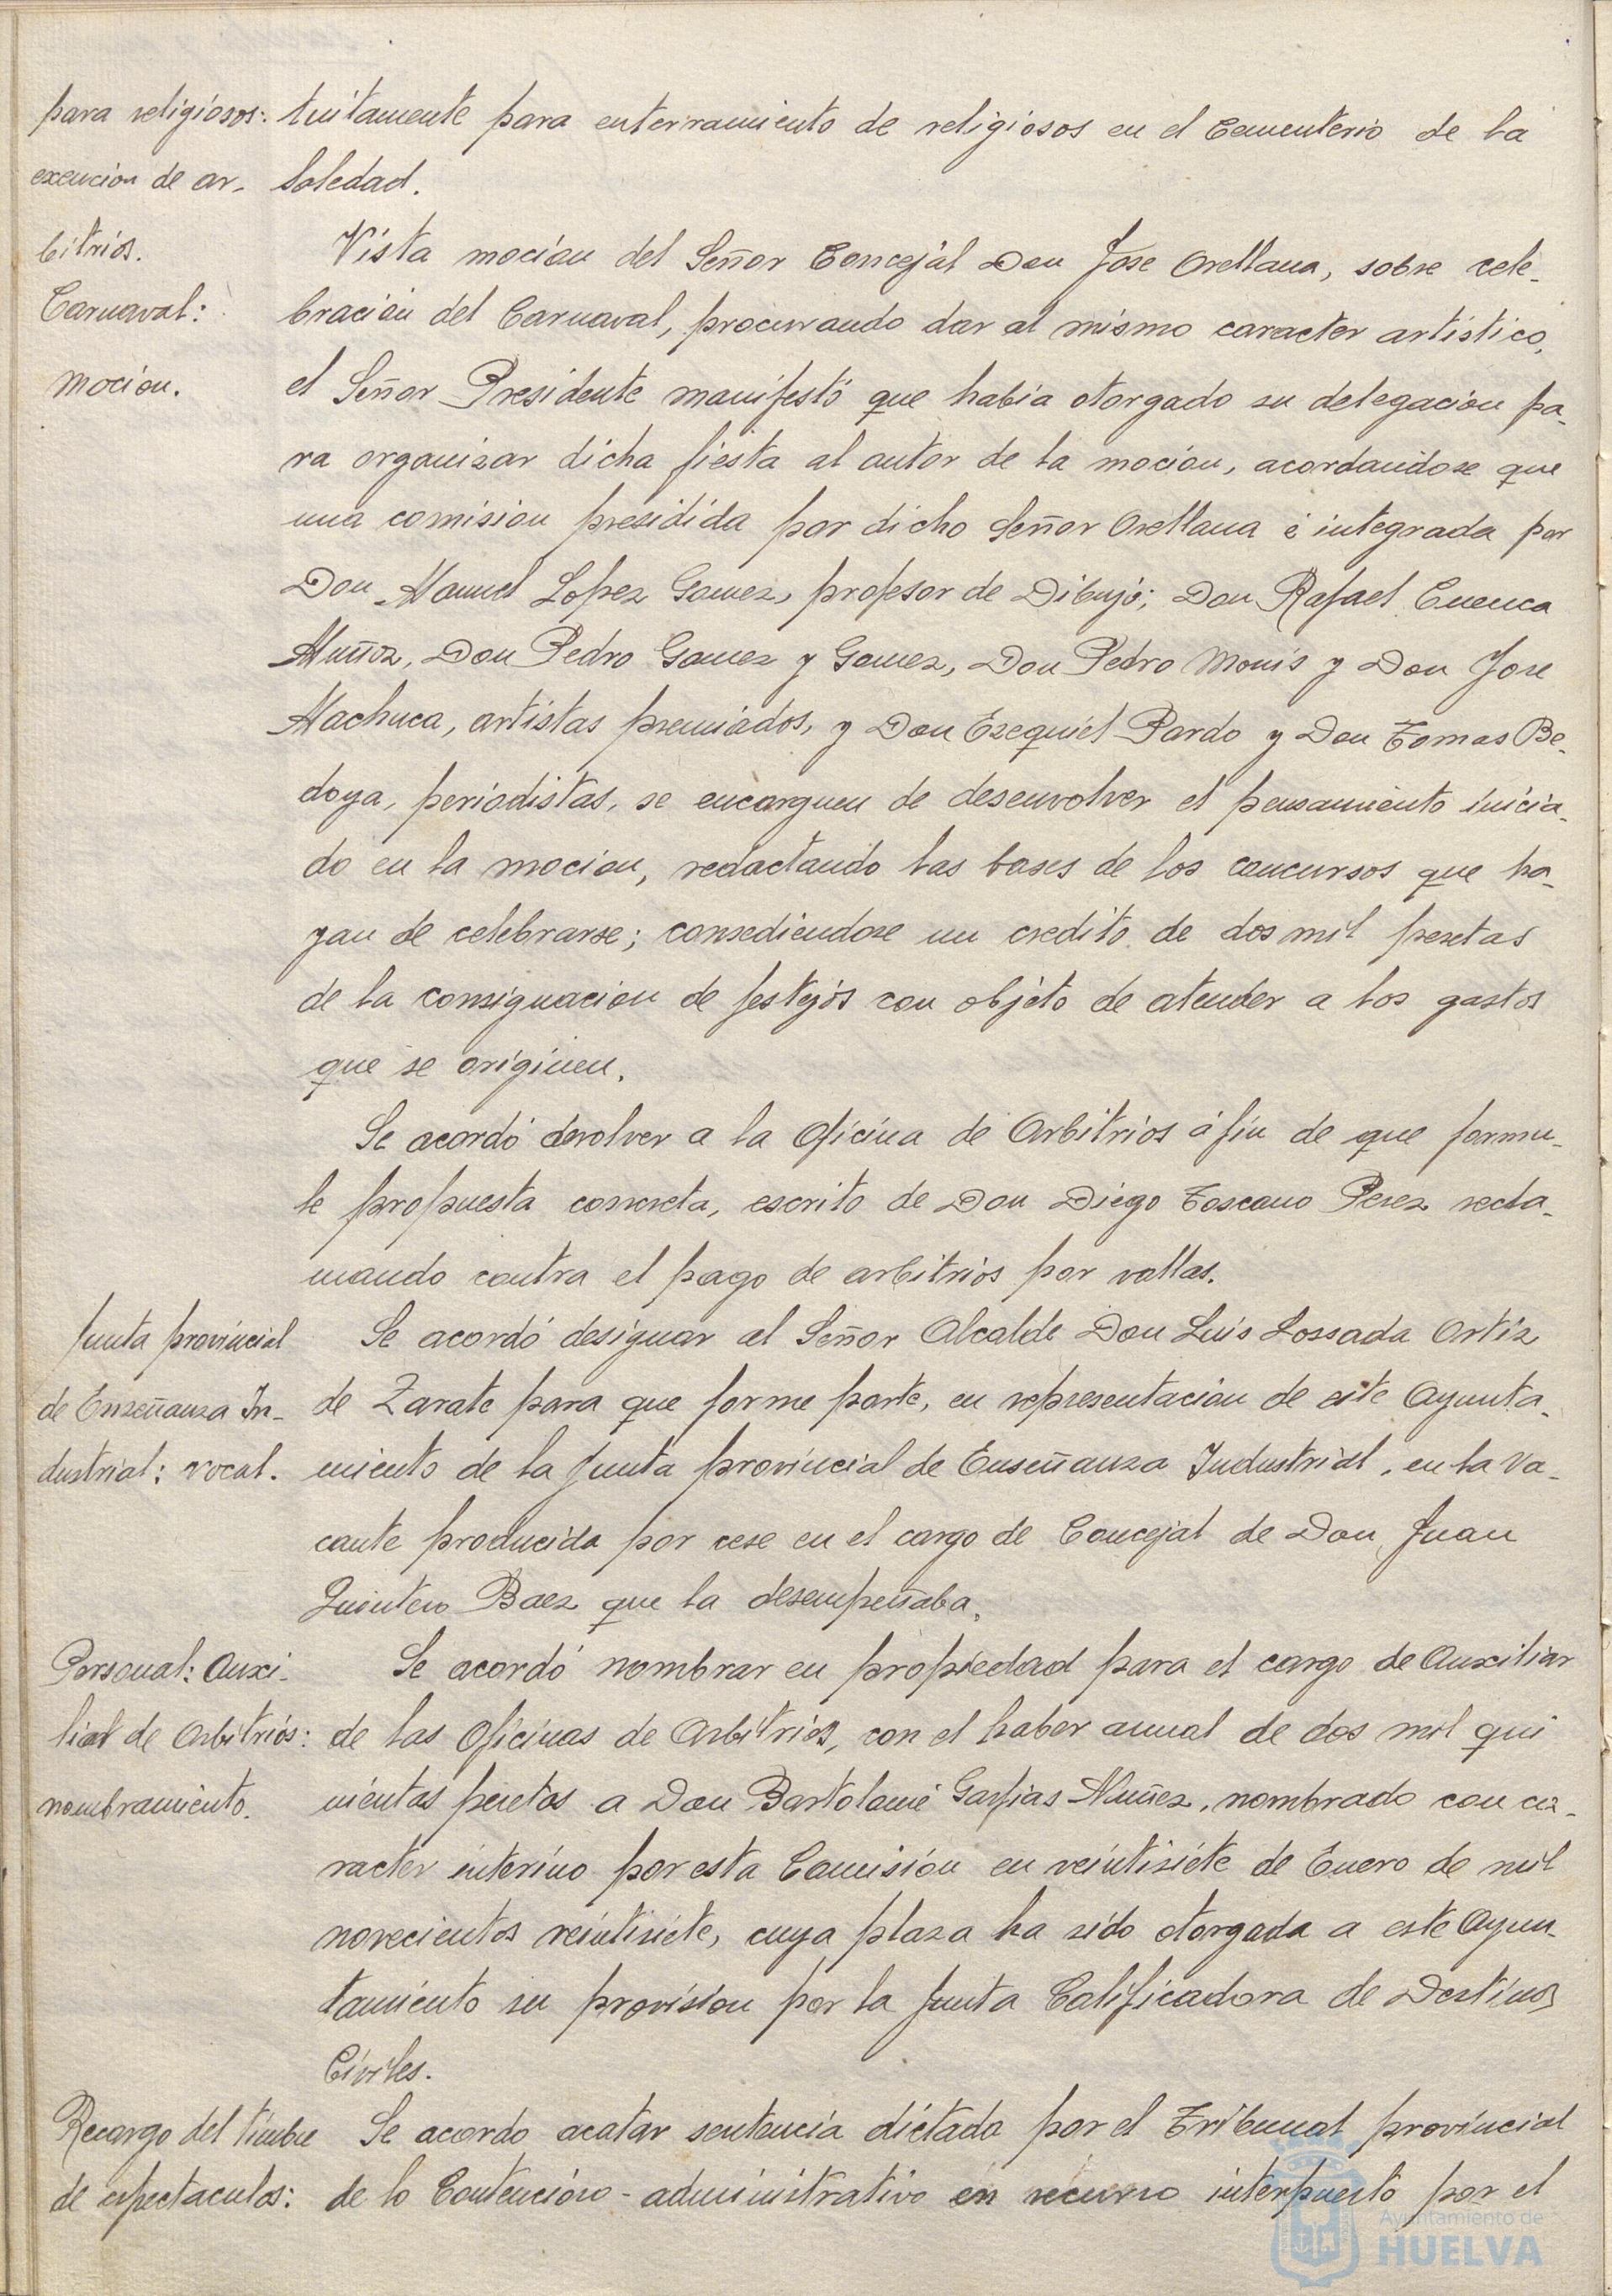 para religiosos:
exencion de ar-
bitrios.
Carnaval:
mocion.
tuitamente para enterramiento de religiosos en el Cementerio de la
Soledad.
Vista mocion del Señor Concejal Don Jose Orellana, sobre cele-
bracion del Carnaval, procurando dar al mismo caracter artistico,
el Señor Presidente manifestó que habia otorgado su delegacion pa-
ra organizar dicha fiesta al autor de la mocion, acordandose que
una comision presidida por dicho Señor Orellana é integrada por
Don Manuel Lopez Gomez, profesor de Dibujo; Don Rafael Cuenca
Muñoz, Don Pedro Gomez y Gomez, Don Pedro Monis y Don Jose
Machuca, artistas premiados, y Don Ezequiel Pardo y Don Tomas Be-
doya, periodistas, se encarguen de desenvolver el pensamiento inicia-
do en la mocion, redactando las bases de los concursos que ha-
yan de celebrarse; consediendose un credito de dos mil pesetas
de la consignacion de festejos con objeto de atender a los gastos
que se originen.
Se acordó devolver a la Oficina de Arbitrios á fin de que formu-
le propuesta concreta, escrito de Don Diego Toscano Perez recla-
mando contra el pago de arbitrios por vallas.
Junta provincial
de Enseñanza In-
dustrial: vocal.
Se acordó designar al Señor Alcalde Don Luis Lossada Ortiz
de Zarate para que forme parte, en representacion de este Ayunta-
miento de la Junta provincial de Enseñanza Industrial, en la va-
cante producida por cese en el cargo de Concejal de Don Juan
Quintero Baez que la desempeñaba.
Personal: Auxi-
liar de Arbitrios:
nombramiento.
Se acordó nombrar en propiedad para el cargo de Auxiliar
de las Oficinas de Arbitrios, con el haber anual de dos mil qui
nientas pesetas a Don Bartolomé Garfias Nuñez, nombrado con ca-
racter interino por esta Comision en veintisiete de Enero de mil
novecientos veintisiete, cuya plaza ha sido otorgada a este Ayun-
tamiento su provision por la Junta Calificadora de Destinos
Civiles.
Recargo del timbre
de espectaculos:
Se acordo acatar sentencia dictada por el Tribunal provincial
de lo Contencioso-administrativo en recurso interpuesto por el
Ayuntamiento de
HUELVA